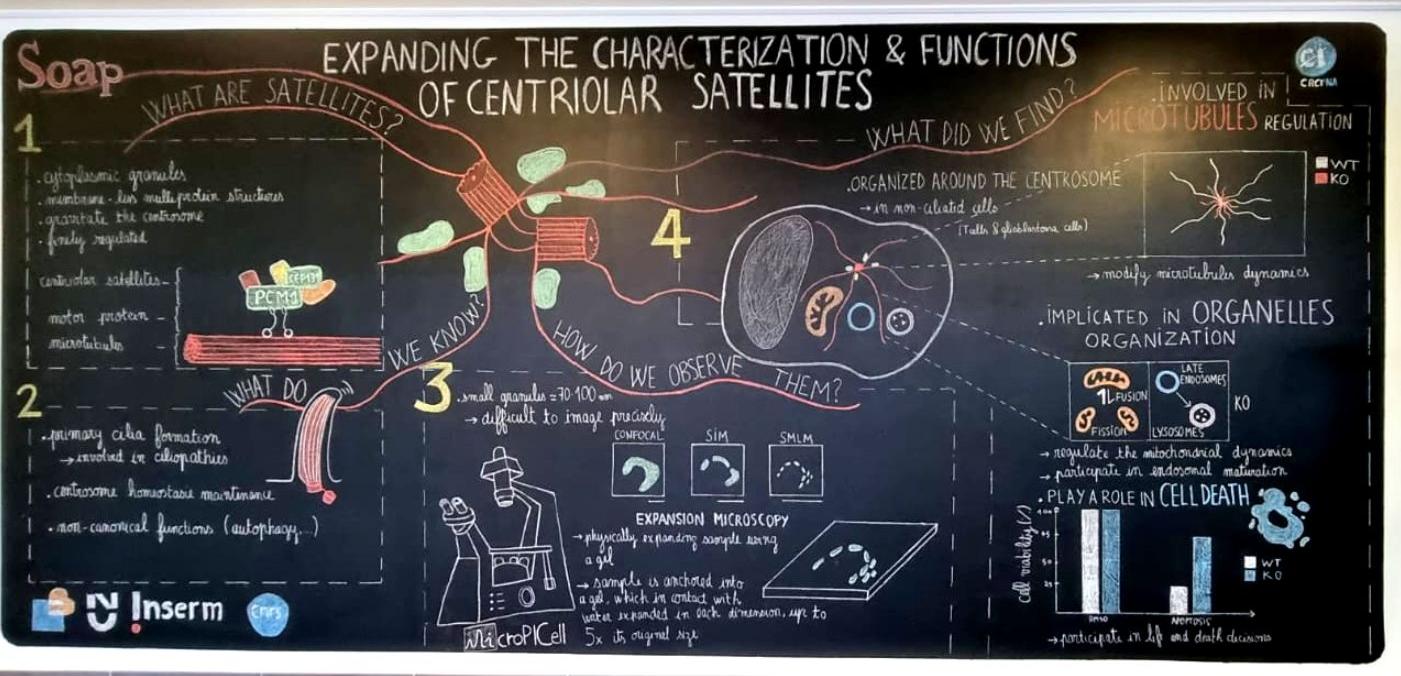 Soap
EXPANDING THE CHARACTERIZATION & FUNCTIONS
OF CENTRIOLAR SATELLITES
CRCI²NA
WHAT ARE SATELLITES?
1
. cytoplasmic granules
. membrane-less multiprotein structures
. gravitate the centrosome
. finely regulated
centriolar satellites
PCM1
CEP131
motor protein
microtubules
WHAT DO WE KNOW?
2
. primary cilia formation
→ involved in ciliopathies
. centrosome homeostasie maintenance
. non-canonical functions (autophagy,...)
Inserm
cnrs
HOW DO WE OBSERVE THEM?
3
. small granules ≈ 70-100 nm
→ difficult to image precisely
CONFOCAL
SIM
SMLM
EXPANSION MICROSCOPY
→ physically expanding sample using
a gel
→ sample is anchored into
a gel, which in contact with
water expanded in each dimension, up to
5x its original size
MicroPICell
WHAT DID WE FIND?
4
. ORGANIZED AROUND THE CENTROSOME
→ in non-ciliated cells
(T cells & glioblastoma cells)
. INVOLVED IN
MICROTUBULES REGULATION
WT
KO
→ modify microtubules dynamics
. IMPLICATED IN ORGANELLES
ORGANIZATION
FUSION
FISSION
LATE
ENDOSOMES
LYSOSOMES
KO
→ regulate the mitochondrial dynamics
→ participate in endosomal maturation
. PLAY A ROLE IN CELL DEATH
cell viability (%)
100
75
50
25
DMSO
NECROSIS
WT
KO
→ participate in life and death decisions